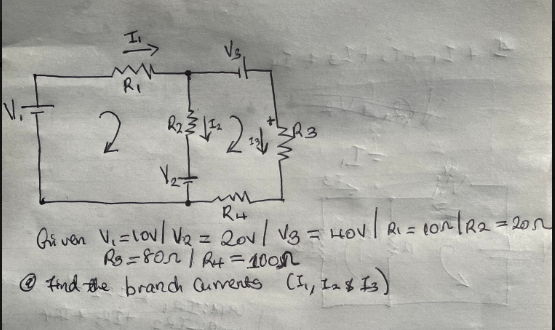 I₁ V₃
R₁
V₁ R₂ I₂ I₃ + R₃
V₂
R₄
Given V₁=10V| V₂ = 20V| V₃ = 40V| R₁ = 10Ω |R₂ = 20Ω
R₃=80Ω | R₄ = 100Ω
@ find the branch currents (I₁, I₂ & I₃)